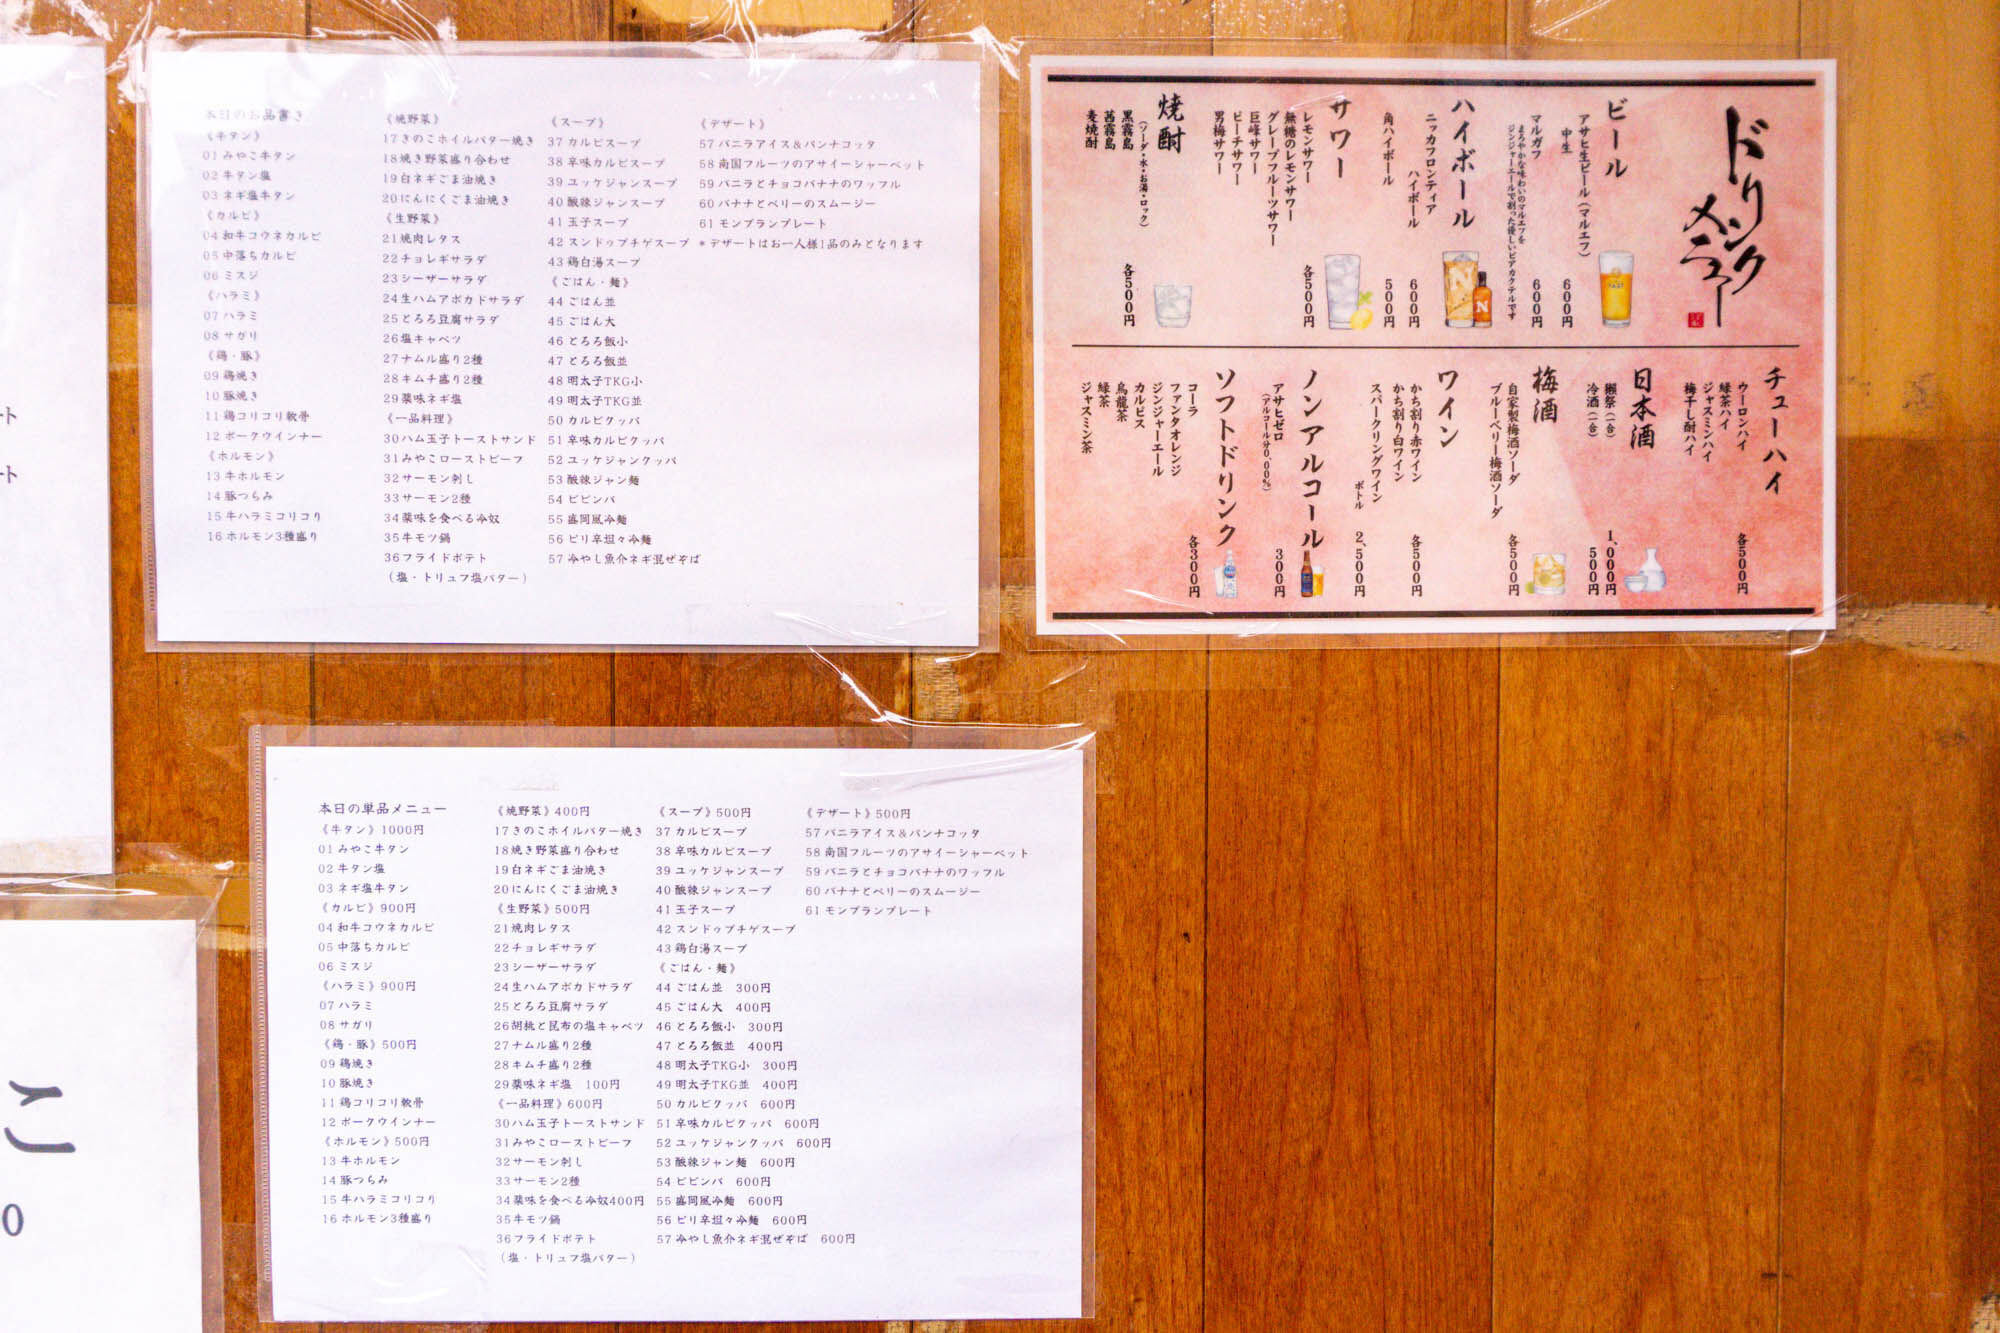 本日のお品書き
《牛タン》
01 みやこ牛タン
02 牛タン塩
03 ネギ塩牛タン
《カルビ》
04 和牛コウネカルビ
05 中落ちカルビ
06 ミスジ
《ハラミ》
07 ハラミ
08 サガリ
《鶏・豚》
09 鶏焼き
10 豚焼き
11 鶏コリコリ軟骨
12 ポークウインナー
《ホルモン》
13 牛ホルモン
14 豚つらみ
15 牛ハラミコリコリ
16 ホルモン3種盛り
《焼野菜》
17きのこホイルバター焼き
18焼き野菜盛り合わせ
19白ネギごま油焼き
20にんにくごま油焼き
《生野菜》
21焼肉レタス
22チョレギサラダ
23シーザーサラダ
24生ハムアボカドサラダ
25とろろ豆腐サラダ
26塩キャベツ
27ナムル盛り2種
28キムチ盛り2種
29薬味ネギ塩
《一品料理》
30ハム玉子トーストサンド
31みやこローストビーフ
32サーモン刺し
33サーモン2種
34薬味を食べる冷奴
35牛モツ鍋
36フライドポテト
（塩・トリュフ塩バター）
《スープ》
37 カルビスープ
38 辛味カルビスープ
39 ユッケジャンスープ
40 酸辣ジャンスープ
41 玉子スープ
42 スンドゥブチゲスープ
43 鶏白湯スープ
《ごはん・麺》
44 ごはん並
45 ごはん大
46 とろろ飯小
47 とろろ飯並
48 明太子TKG小
49 明太子TKG並
50 カルビクッパ
51 辛味カルビクッパ
52 ユッケジャンクッパ
53 酸辣ジャン麺
54 ビビンバ
55 盛岡風冷麺
56 ピリ辛坦々冷麺
57 冷やし魚介ネギ混ぜそば
《デザート》
57 バニラアイス＆パンナコッタ
58 南国フルーツのアサイーシャーベット
59 バニラとチョコバナナのワッフル
60 バナナとベリーのスムージー
61 モンブランプレート
＊デザートはお一人様1品のみとなります
ドリンク
メニュー
ビール
アサヒ生ビール（マルエフ）
中生
600円
マルガフ
まろやかな味わいのマルエフを
ジンジャーエールで割った優しいビアカクテルです
600円
ハイボール
ニッカフロンティア
ハイボール
600円
角ハイボール
500円
サワー
レモンサワー
無糖のレモンサワー
グレープフルーツサワー
巨峰サワー
ピーチサワー
男梅サワー
各500円
焼酎
（ソーダ・水・お湯・ロック）
黒霧島
茜霧島
麦焼酎
各500円
チューハイ
ウーロンハイ
緑茶ハイ
ジャスミンハイ
梅干し酎ハイ
各500円
日本酒
獺祭（一合）
1,000円
冷酒（一合）
500円
梅酒
自家製梅酒ソーダ
ブルーベリー梅酒ソーダ
各500円
ワイン
かち割り赤ワイン
かち割り白ワイン
各500円
スパークリングワイン
ボトル
2,500円
ノンアルコール
アサヒゼロ
（アルコール分0.00%）
300円
ソフトドリンク
コーラ
ファンタオレンジ
ジンジャーエール
カルピス
烏龍茶
緑茶
ジャスミン茶
各300円
本日の単品メニュー
《牛タン》1000円
01 みやこ牛タン
02 牛タン塩
03 ネギ塩牛タン
《カルビ》900円
04 和牛コウネカルビ
05 中落ちカルビ
06 ミスジ
《ハラミ》900円
07 ハラミ
08 サガリ
《鶏・豚》500円
09 鶏焼き
10 豚焼き
11 鶏コリコリ軟骨
12 ポークウインナー
《ホルモン》500円
13 牛ホルモン
14 豚つらみ
15 牛ハラミコリコリ
16 ホルモン3種盛り
《焼野菜》400円
17きのこホイルバター焼き
18焼き野菜盛り合わせ
19白ネギごま油焼き
20にんにくごま油焼き
《生野菜》500円
21焼肉レタス
22チョレギサラダ
23シーザーサラダ
24生ハムアボカドサラダ
25とろろ豆腐サラダ
26胡桃と昆布の塩キャベツ
27ナムル盛り2種
28キムチ盛り2種
29薬味ネギ塩　100円
《一品料理》600円
30ハム玉子トーストサンド
31みやこローストビーフ
32サーモン刺し
33サーモン2種
34薬味を食べる冷奴400円
35牛モツ鍋
36フライドポテト
（塩・トリュフ塩バター）
《スープ》500円
37 カルビスープ
38 辛味カルビスープ
39 ユッケジャンスープ
40 酸辣ジャンスープ
41 玉子スープ
42 スンドゥブチゲスープ
43 鶏白湯スープ
《ごはん・麺》
44 ごはん並　300円
45 ごはん大　400円
46 とろろ飯小　300円
47 とろろ飯並　400円
48 明太子TKG小　300円
49 明太子TKG並　400円
50 カルビクッパ　600円
51 辛味カルビクッパ　600円
52 ユッケジャンクッパ　600円
53 酸辣ジャン麺　600円
54 ビビンバ　600円
55 盛岡風冷麺　600円
56 ピリ辛坦々冷麺　600円
57 冷やし魚介ネギ混ぜそば　600円
《デザート》500円
57 バニラアイス＆パンナコッタ
58 南国フルーツのアサイーシャーベット
59 バニラとチョコバナナのワッフル
60 バナナとベリーのスムージー
61 モンブランプレート
ト
ト
こ
0